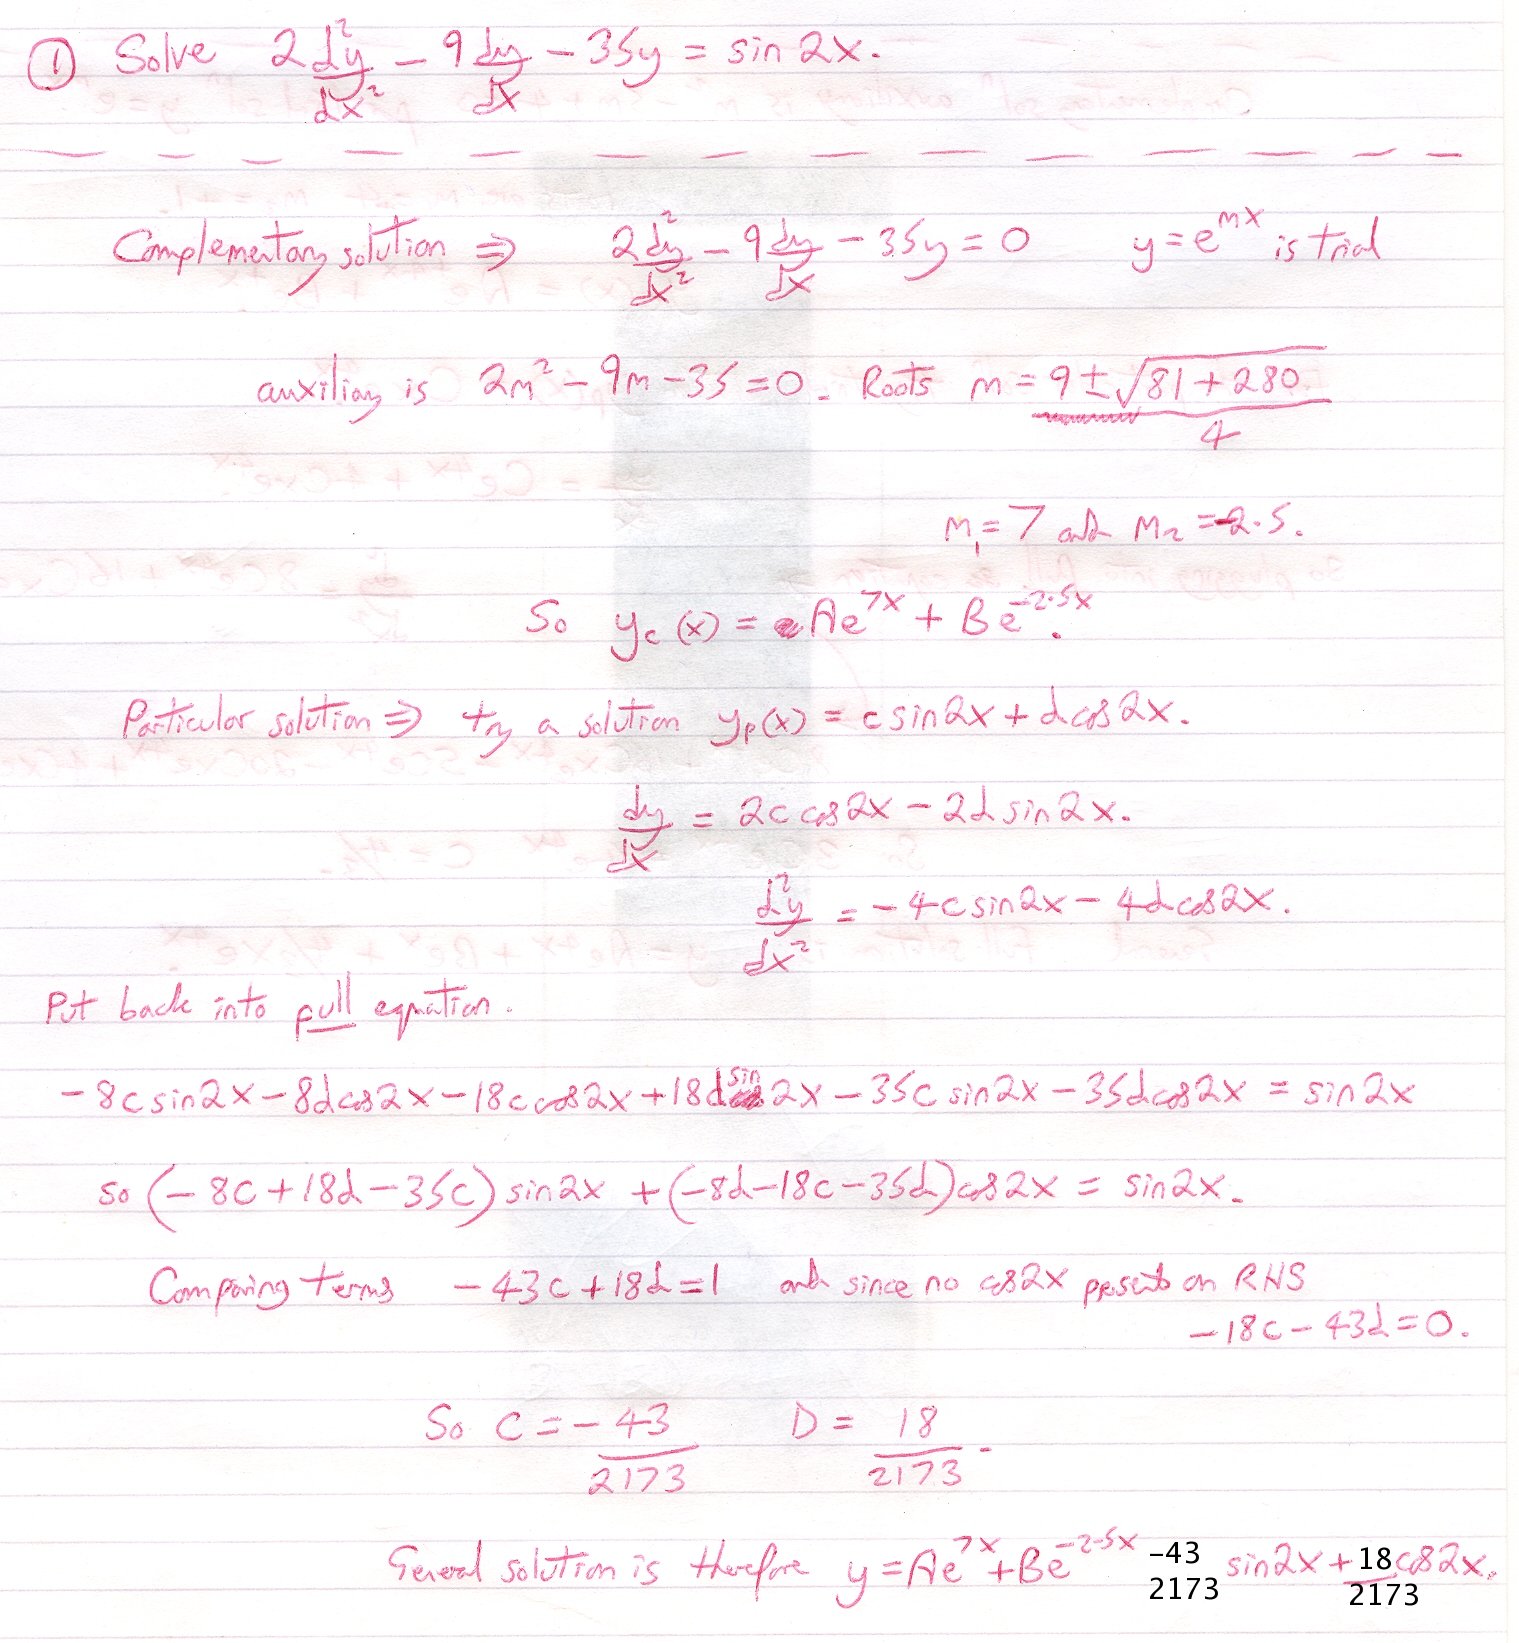 ① Solve 2 d²y/dx² - 9 dy/dx - 35y = sin 2x.
Complementary solution ⇒ 2 d²y/dx² - 9 dy/dx - 35y = 0 y = e^mx is trial
auxiliary is 2m² - 9m - 35 = 0. Roots m = 9 ± √81 + 280 / 4
m₁ = 7 and m₂ = -2.5.
So y_c (x) = Ae^7x + Be^-2.5x.
Particular solution ⇒ try a solution y_p(x) = c sin 2x + d cos 2x.
dy/dx = 2c cos 2x - 2d sin 2x.
d²y/dx² = -4c sin 2x - 4d cos 2x.
Put back into full equation.
-8c sin 2x - 8d cos 2x - 18c cos 2x + 18d sin 2x - 35c sin 2x - 35d cos 2x = sin 2x
so (-8c + 18d - 35c) sin 2x + (-8d - 18c - 35d) cos 2x = sin 2x.
Comparing terms -43c + 18d = 1 and since no cos 2x presents on RHS
-18c - 43d = 0.
So C = -43/2173 D = 18/2173.
General solution is therefore y = Ae^7x + Be^-2.5x -43/2173 sin 2x + 18/2173 cos 2x.